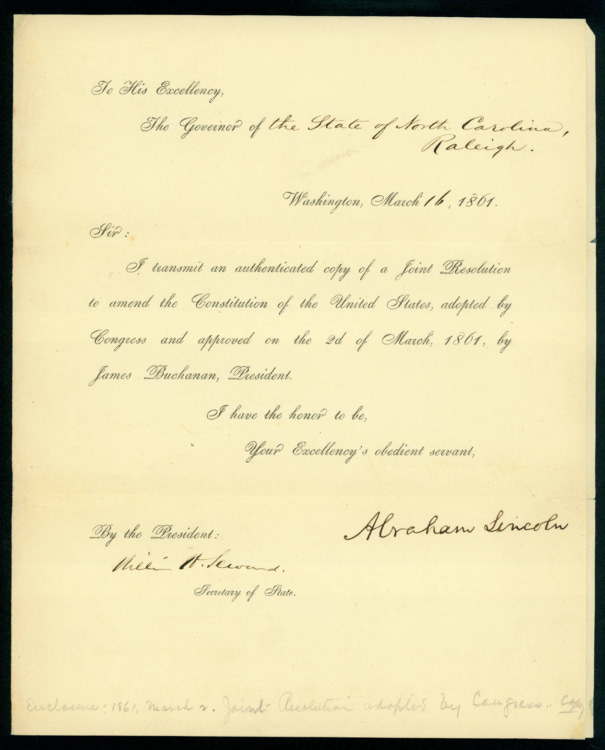 To His Excellency,
The Governor of the State of North Carolina,
Raleigh.
Washington, March 16, 1861.
Sir:
I transmit an authenticated copy of a Joint Resolution
to amend the Constitution of the United States, adopted by
Congress and approved on the 2d of March, 1861, by
James Buchanan, President.
I have the honor to be,
Your Excellency's obedient servant,
Abraham Lincoln
By the President:
William H. Seward.
Secretary of State.
Enclosure: 1861, March 2. Joint Resolution adopted by Congress. Copy